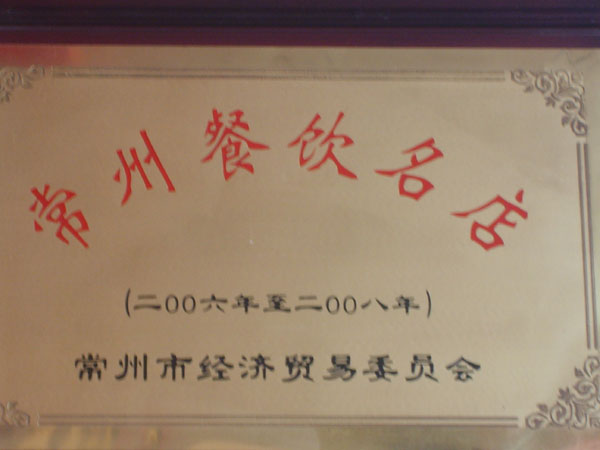 常州餐饮名店
(二00六年至二00八年)
常州市经济贸易委员会